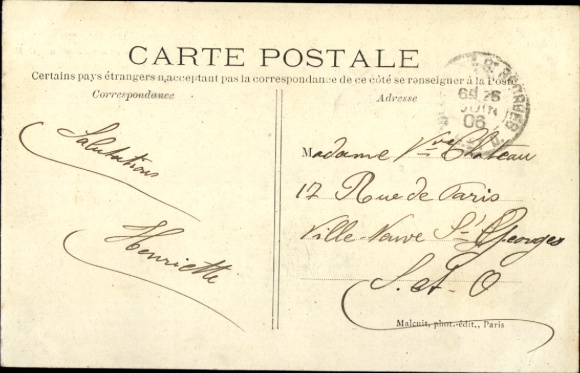 CARTE POSTALE
Certains pays étrangers n'acceptant pas la correspondance de ce côté se renseigner à la Poste
Correspondance
Adresse
Salutations
Henriette
Madame Vve Chateau
17 Rue de Paris
Ville-Neuve St Georges
S. et O
Malcuit, phot.-édit., Paris
06